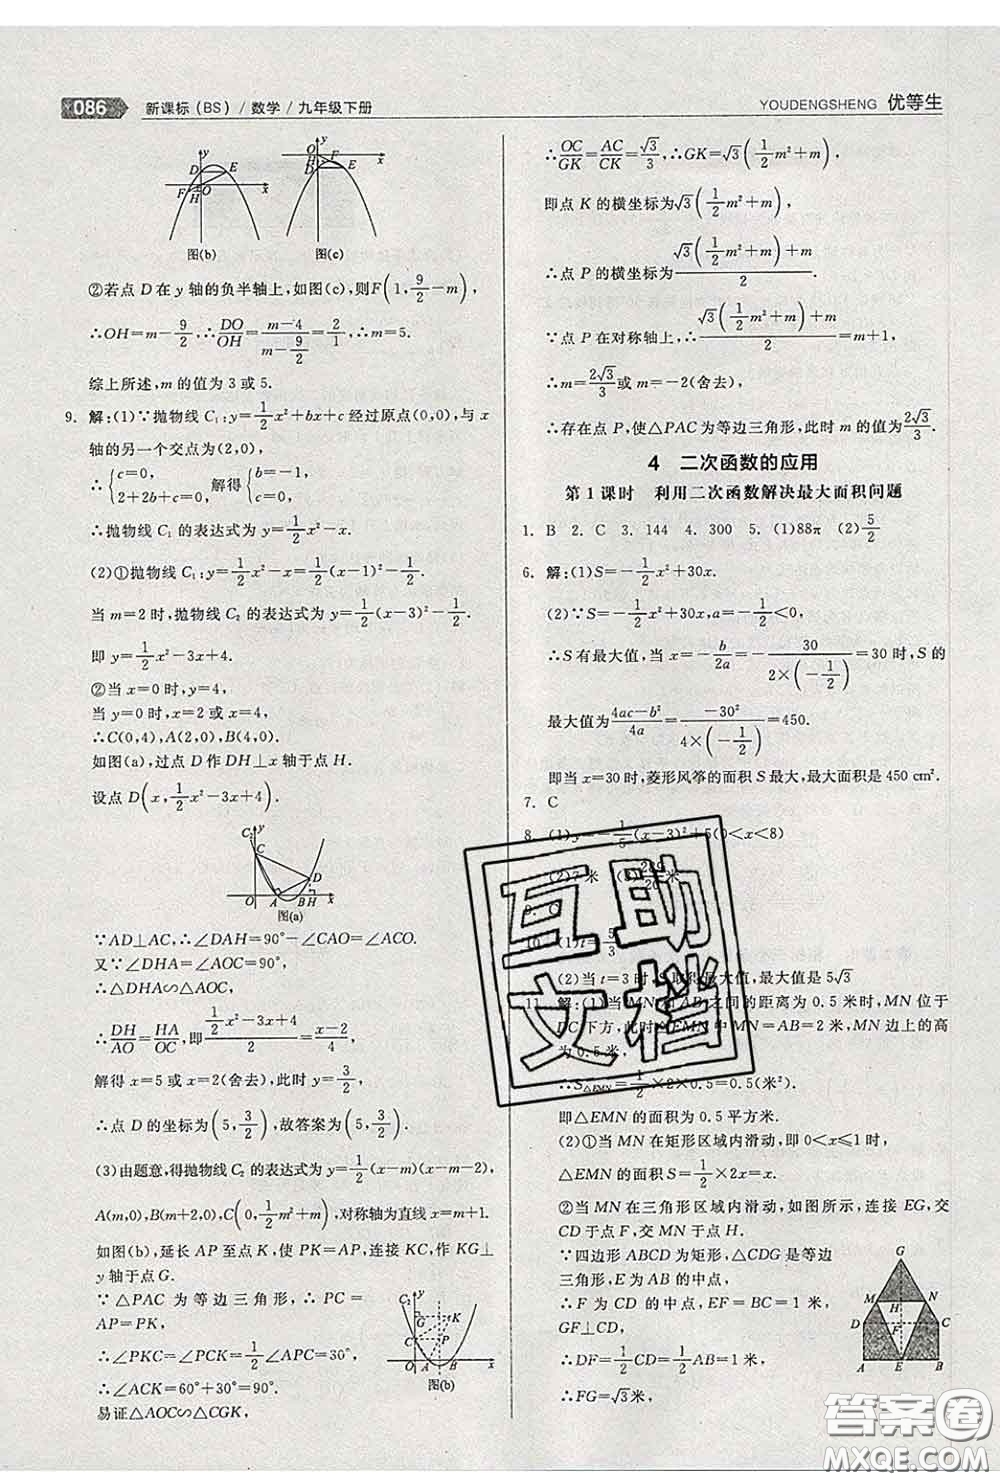 086 新课标（BS）/ 数学 / 九年级下册
YOUDENGSHENG 优等生
图(b) 图(c)
②若点 D 在 y 轴的负半轴上,如图(c),则F(1, 9/2−m),
∴OH=m−9/2,∴DO/OH=(m−4)/(m−9/2)=2/1,∴m=5.
综上所述,m 的值为 3 或 5.
9. 解:(1)∵抛物线 C₁:y=1/2x²+bx+c 经过原点(0,0),与 x
轴的另一个交点为(2,0),
∴{c=0, 2+2b+c=0, 解得{b=−1, c=0.
∴抛物线 C₁ 的表达式为 y=1/2x²−x.
(2)①抛物线 C₁:y=1/2x²−x=1/2(x−1)²−1/2.
当 m=2 时,抛物线 C₂ 的表达式为 y=1/2(x−3)²−1/2,
即 y=1/2x²−3x+4.
②当 x=0 时,y=4,
当 y=0 时,x=2 或 x=4,
∴C(0,4),A(2,0),B(4,0).
如图(a),过点 D 作 DH⊥x 轴于点 H.
设点 D(x, 1/2x²−3x+4).
C₂ y C D O A B H x
图(a)
∵AD⊥AC,∴∠DAH=90°−∠OAC=∠ACO.
又∵∠DHA=∠AOC=90°,
∴△DHA∽△AOC,
∴DH/AO=HA/OC,即(1/2x²−3x+4)/2=(x−2)/4,
解得 x=5 或 x=2(舍去),此时 y=3/2,
∴点 D 的坐标为(5, 3/2),故答案为(5, 3/2).
(3)由题意,得抛物线 C₂ 的表达式为 y=1/2(x−m)(x−m−2),
A(m,0),B(m+2,0),C(0, 1/2m²+m),对称轴为直线 x=m+1.
如图(b),延长 AP 至点 K,使 PK=PA,连接 KC,作 KG⊥
y 轴于点 G.
∵△PAC 为等边三角形,∴PC=
AP=PK,
∴∠PKC=∠PCK=1/2∠APC=30°,
∴∠ACK=60°+30°=90°.
易证△AOC∽△CGK,
图(b)
∴OC/GK=AC/CK=√3/3,∴GK=√3(1/2m²+m),
即点 K 的横坐标为√3(1/2m²+m),
∴点 P 的横坐标为(√3(1/2m²+m)+m)/2.
∵点 P 在对称轴上,∴(√3(1/2m²+m)+m)/2=m+1,
∴m=2√3/3或 m=−2(舍去),
∴存在点 P,使△PAC为等边三角形,此时 m 的值为2√3/3.
4 二次函数的应用
第 1 课时 利用二次函数解决最大面积问题
1. B 2. C 3. 144 4. 300 5. (1)88π (2)5/2
6. 解:(1)S=−1/2x²+30x.
(2)∵S=−1/2x²+30x,a=−1/2<0,
∴S 有最大值,当 x=−b/2a=−30/(2×(−1/2))=30 时,S 的
最大值为(4ac−b²)/4a=−30²/(4×(−1/2))=450.
即当 x=30 时,菱形风筝的面积 S 最大,最大面积是 450 cm².
7. C
8. (1)y=−1/5(x−3)²+5(0<x<8)
(2)7 米 (3)289/20米
9. C
10. (1)t=5/3
(2)当 t=3 时,S 取得最大值,最大值是 5√3
11. 解:(1)当 MN 和 AB 之间的距离为 0.5 米时,MN 位于
DC 下方,此时△EMN 中 MN=AB=2 米,MN 边上的高
为 0.5 米,
∴S△EMN=1/2×2×0.5=0.5(米²).
即△EMN 的面积为 0.5 平方米.
(2)①当 MN 在矩形区域内滑动,即 0<x≤1 时,
△EMN 的面积 S=1/2×2x=x.
②当 MN 在三角形区域内滑动时,如图所示,连接 EG,交
CD于点 F,交 MN 于点 H.
∵四边形 ABCD 为矩形,△CDG 是等边
三角形,E 为 AB 的中点,
∴F 为 CD 的中点,EF=BC=1 米,
GF⊥CD,
∴DF=1/2CD=1/2×2=1(米),
∴FG=√3米.
G M H N D F C A E B
互助文档
答案圈
MXQE.COM